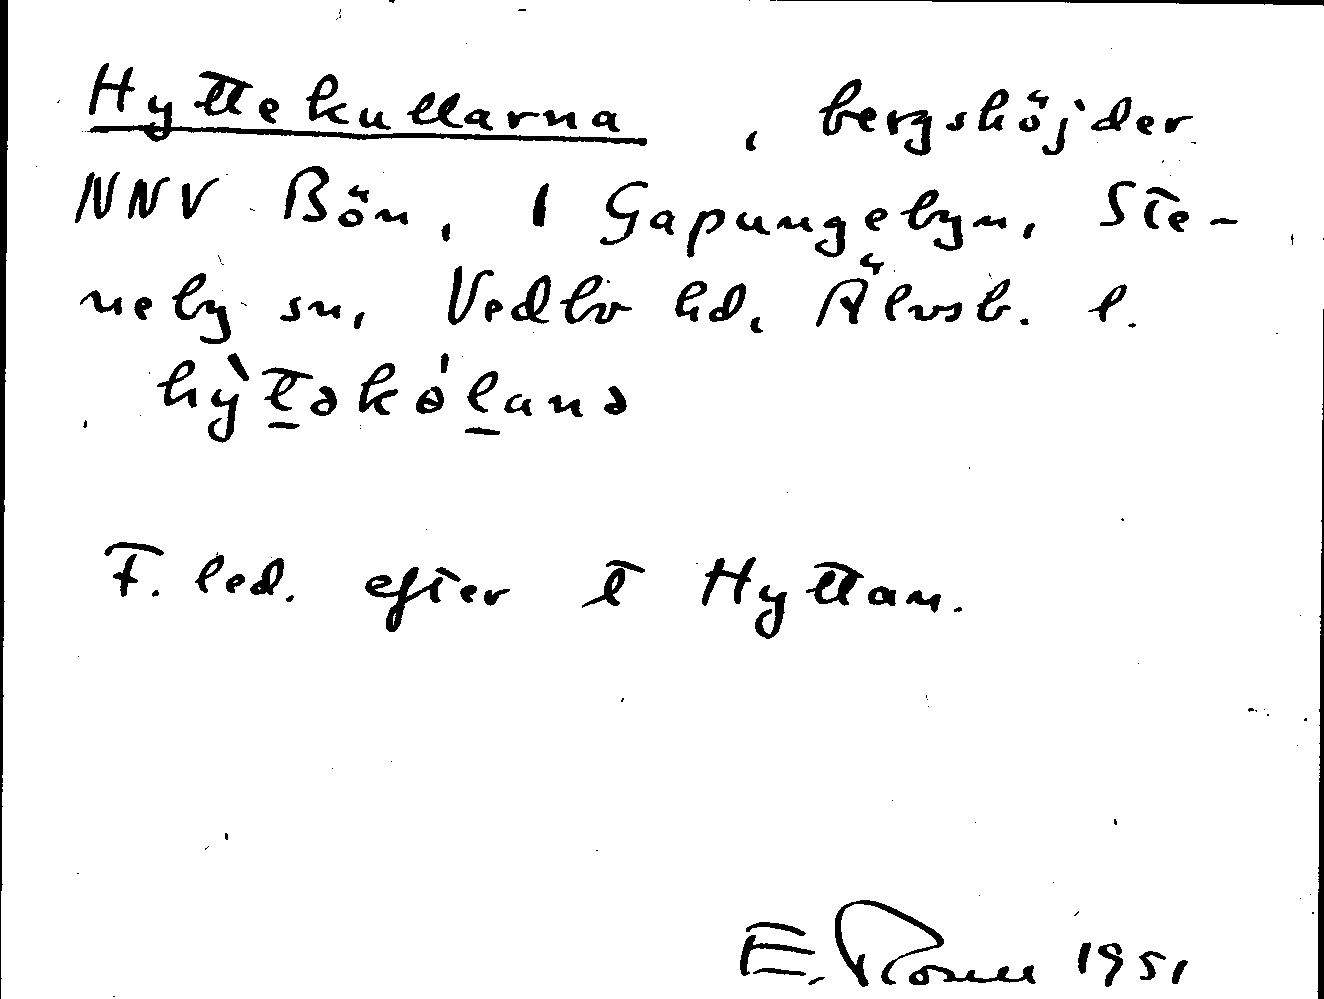 Hyttekullarna, bergshöjder
NNV Bön, 1 Gapungebyn, Ste-
neby sn, Vedbo hd, Älvsb. l.
hỳt̲əkόl̲anə
F. led. efter t Hyttan.
E. Rosell 1951